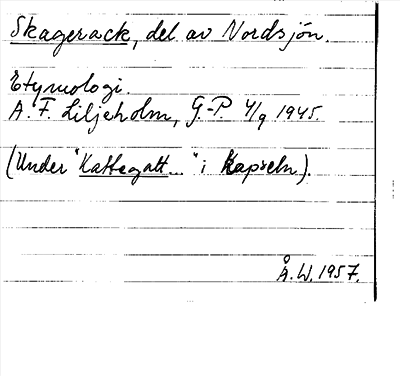 Skagerack, del av Nordsjön.
Etymologi.
A. F. Liljeholm, G.-P. 4/9 1945.
(Under "Kattegatt..." i Kapseln).
Å. W. 1957.